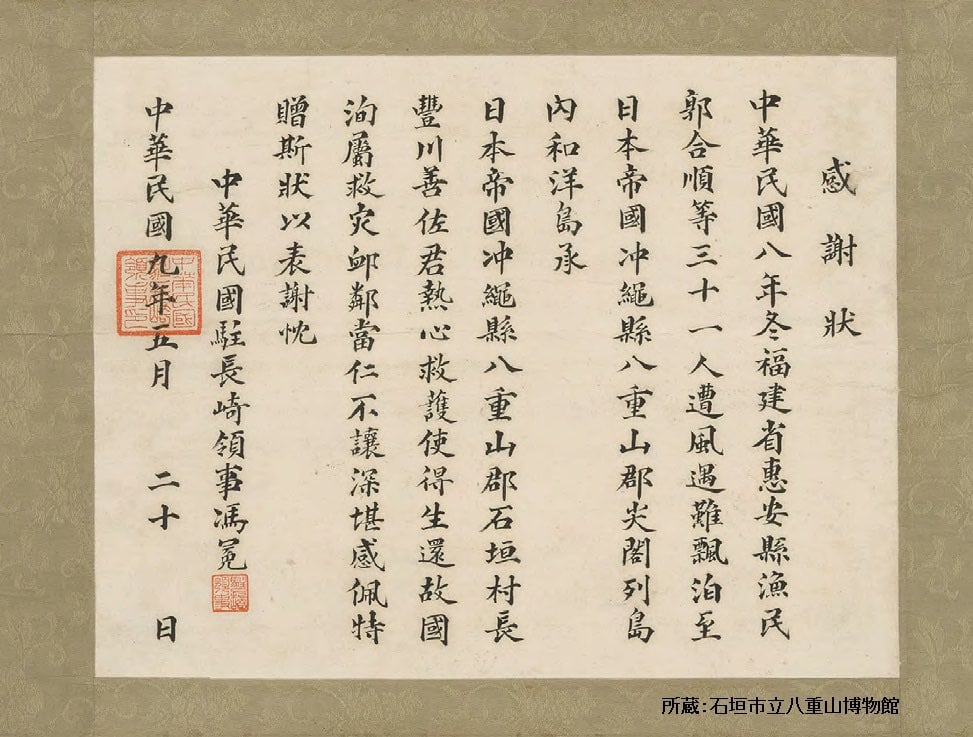 感謝狀
中華民國八年冬福建省惠安縣漁民
郭合順等三十一人遭風遇難飄泊至
日本帝國冲繩縣八重山郡尖閣列島
內和洋島承
日本帝國冲繩縣八重山郡石垣村長
豐川善佐君熱心救護使得生還故國
洵屬救灾邺鄰當仁不讓深堪感佩特
贈斯狀以表謝忱
中華民國駐長崎領事馮冕
中華民國九年五月二十日
所蔵:石垣市立八重山博物館